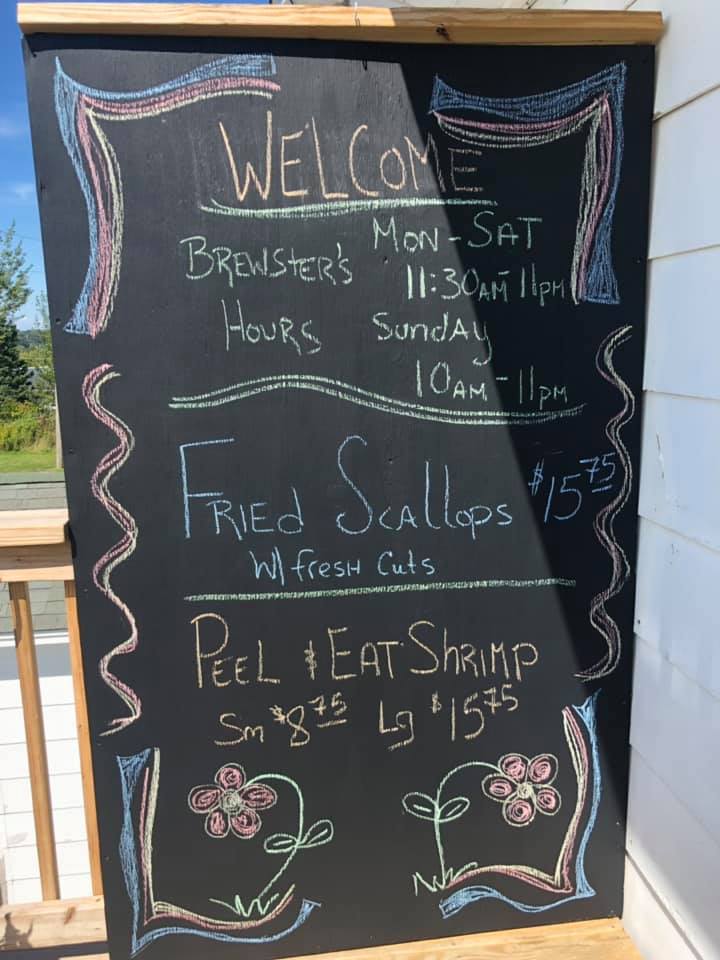 WELCOME
BREWSTER'S HOURS
MON - SAT
11:30AM - 11PM
Sunday
10AM - 11PM
FRIED SCALLOPS $15.75
W/ fresh Cuts
PEEL & EAT SHRIMP
Sm $8.75 Lg $15.75